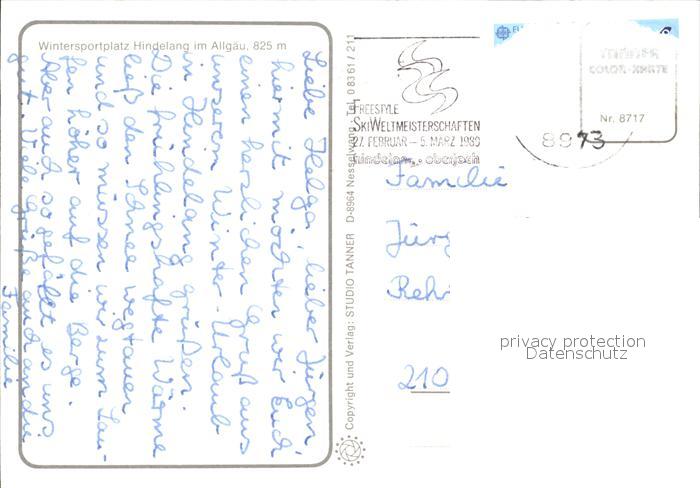 Wintersportplatz Hindelang im Allgäu, 825 m
Liebe Helga, lieber Jürgen,
hiermit möchten wir Euch
einen herzlichen Gruß aus
unserem Winter-Urlaub
in Hindelang grüßen.
Die frühlingshafte Wärme
ließ den Schnee wegtauen
und so müssen wir zum Lau-
fen höher auf die Berge.
Aber auch so gefällt es uns
gut. Viele Grüße auch an die
Familie
Copyright und Verlag: STUDIO TANNER D-8964 Nesselwang · Tel. 08361/211
FREESTYLE
SKIWELTMEISTERSCHAFTEN
27. FEBRUAR – 5. MÄRZ 1989
hindelang - oberjoch
TANNER
COLOR-KARTE
Nr. 8717
8973
Familie
Jürg
Reh
210
privacy protection
Datenschutz